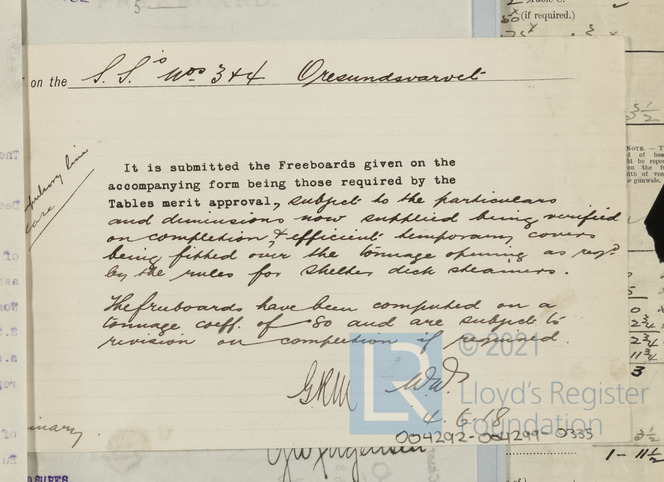 (if required.)
on the S.S's Nos 3 & 4 Oresundsvarvet
It is submitted the Freeboards given on the
accompanying form being those required by the
Tables merit approval, subject to the particulars
and dimensions now supplied being verified
on completion, & efficient temporary covers
being fitted over the tonnage opening as reqd
by the rules for shelter deck steamers.
The freeboards have been computed on a
tonnage coeff. of .80 and are subject to
revision on completion if required.
GRM W.W.
4.6.18
004292-004299-0335
© 2021
LR
Lloyd's Register
Foundation
NOTE. — T
3
1 - 11½